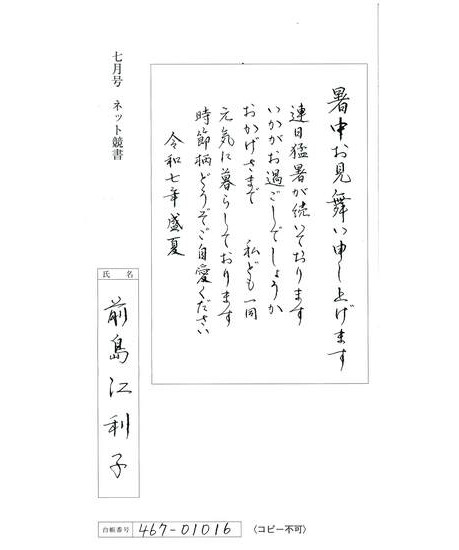 暑中お見舞い申し上げます
連日猛暑が続いております
いかがお過ごしでしょうか
おかげさまで 私ども一同
元気に暮らしております
時節柄どうぞご自愛ください
令和七年盛夏
七月号 ネット競書
氏名
前島江利子
台帳番号 467-01016 (コピー不可)